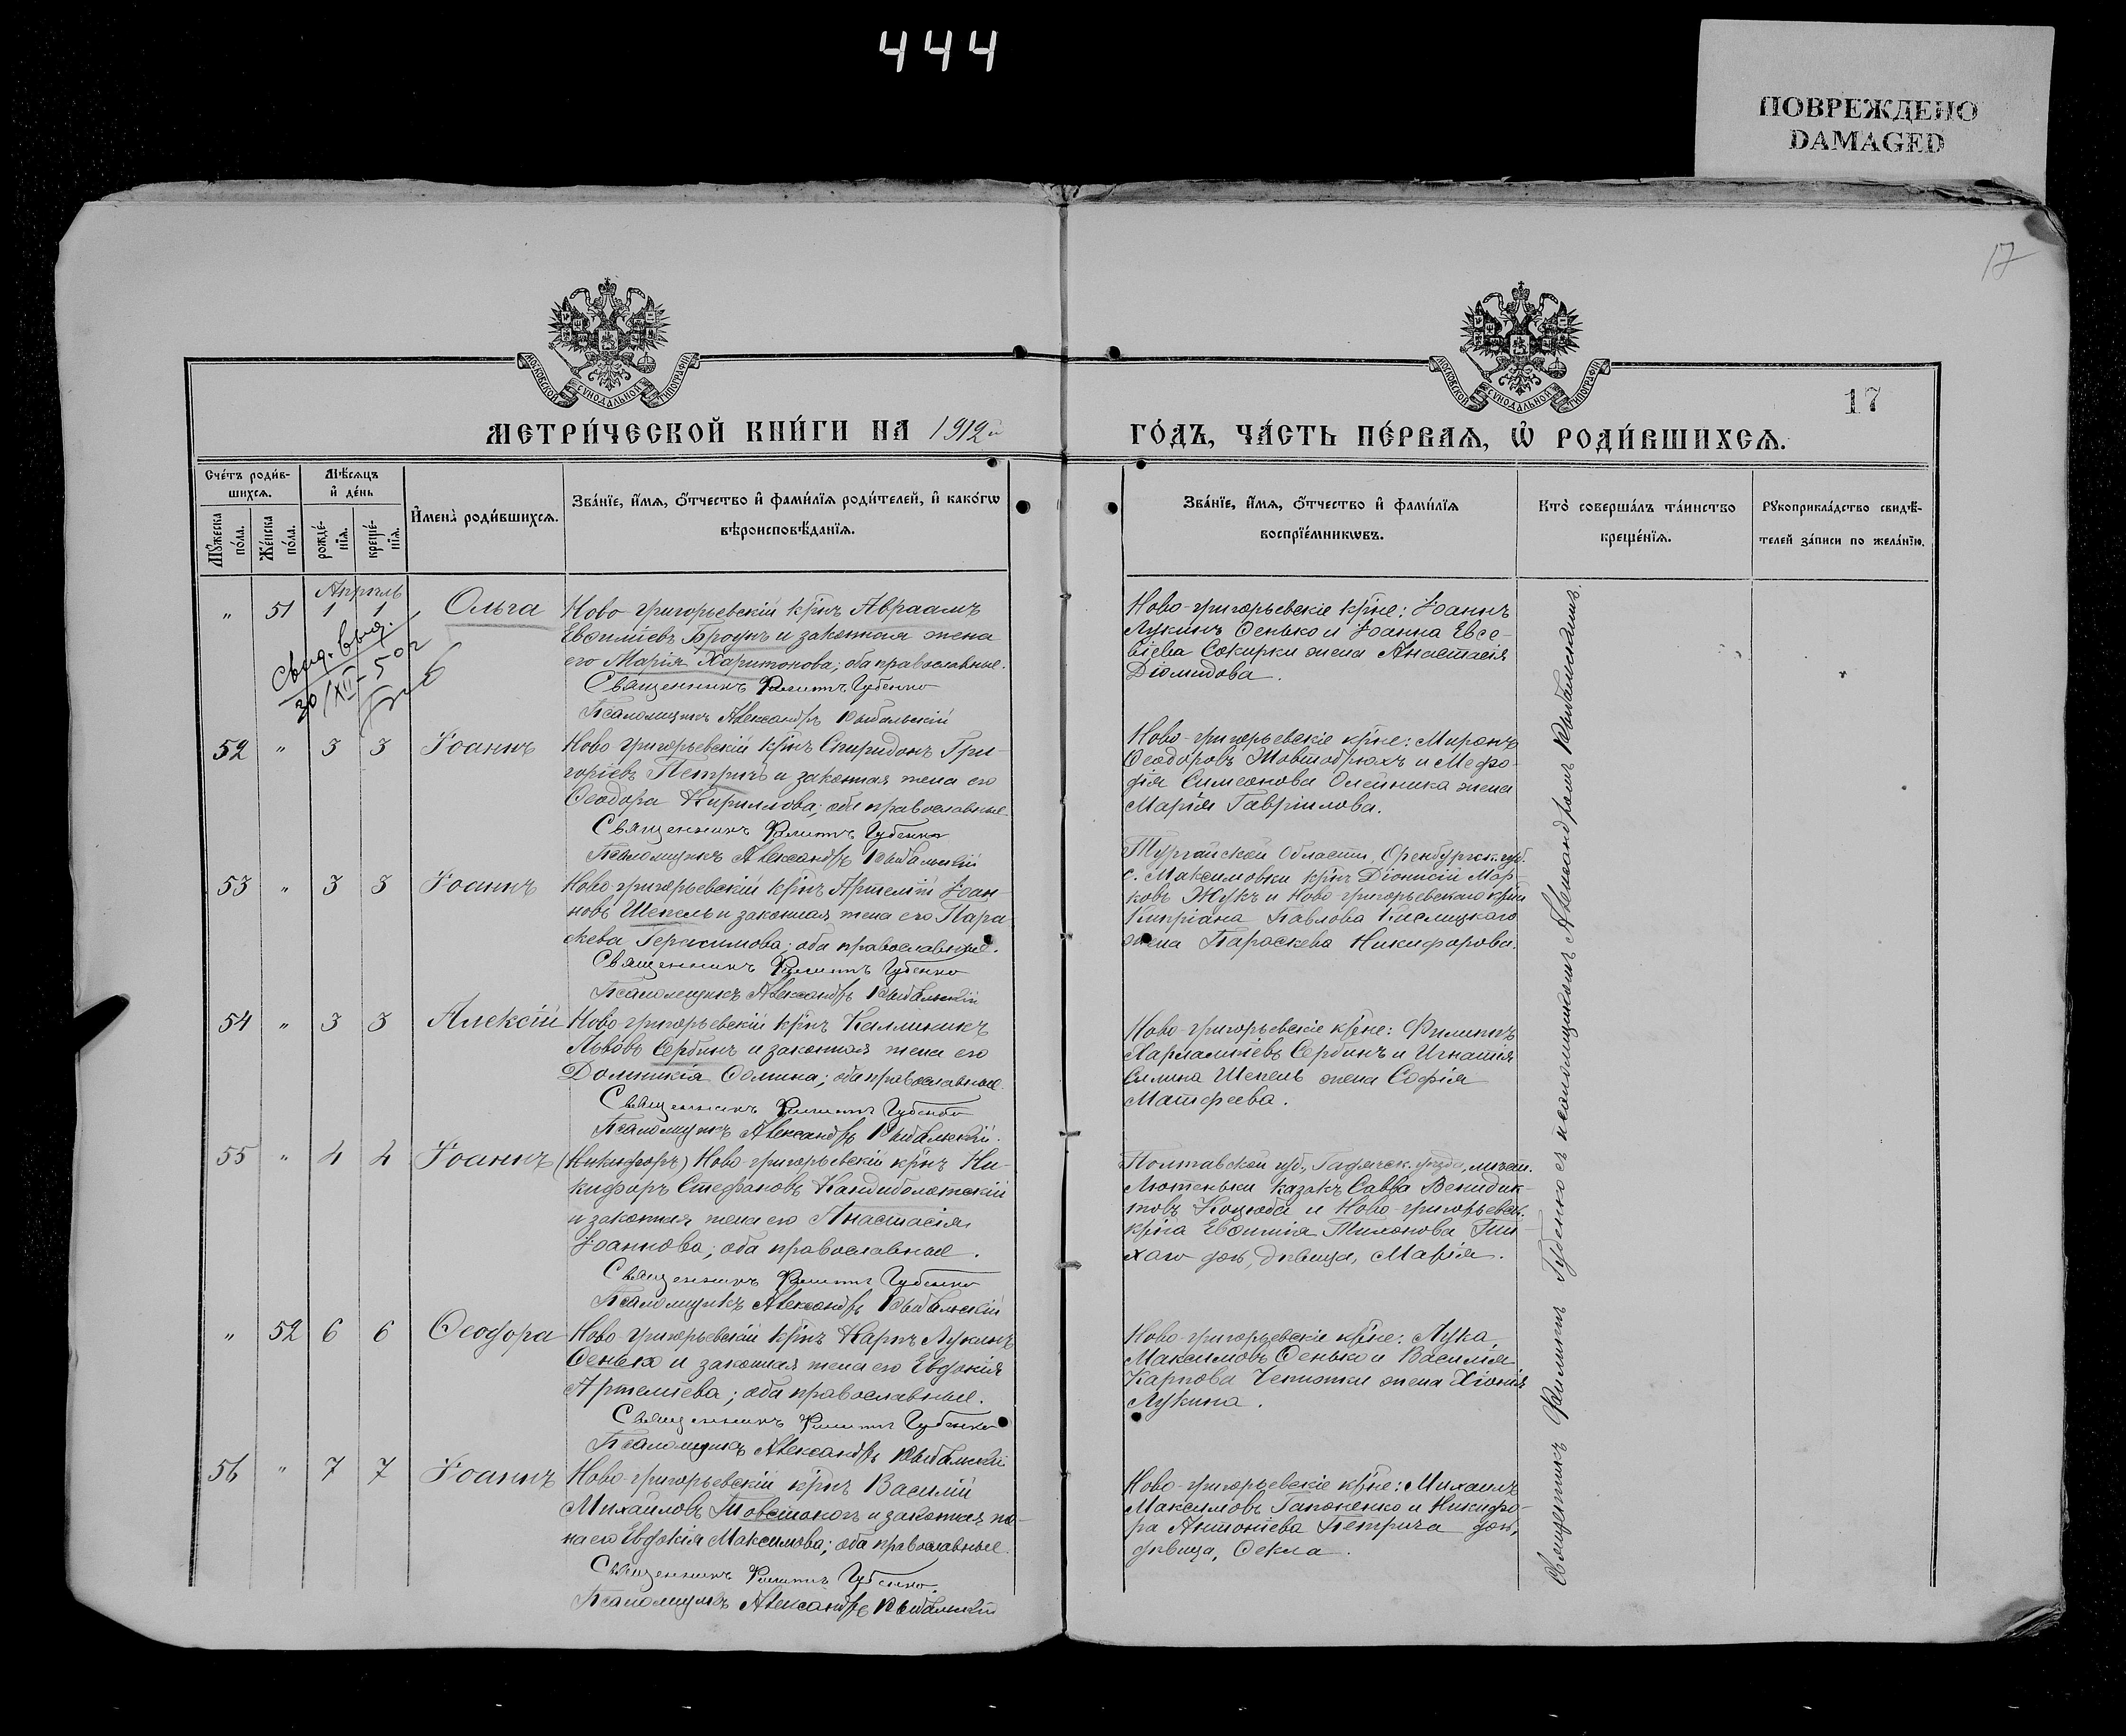 444
ПОВРЕЖДЕНО
DAMAGED
17
МОСКОВСКОЙ СѴНОДАЛЬНОЙ ТИПОГРАФІИ
МОСКОВСКОЙ СѴНОДАЛЬНОЙ ТИПОГРАФІИ
17
МЕТРИ́ЧЕСКОЙ КНИ́ГИ НА 1912й
ГО́ДЪ, ЧА́СТЬ ПЕ́РВАѦ, Ѡ҆ РОДИ́ВШИХСѦ.
Сче́тъ роди́в-
шихсѧ.
Мꙋ́жеска по́ла.
Же́нска по́ла.
Мѣ́сѧцъ
и҆ де́нь
рожде́-
нїѧ.
креще́-
нїѧ.
И҆мена̀ роди́вшихсѧ.
Зва́нїе, и҆́мѧ, ѻ҆́тчество и҆ фами́лїѧ роди́телей, и҆ како́гѡ
вѣроисповѣ́данїѧ.
Зва́нїе, и҆́мѧ, ѻ҆́тчество и҆ фами́лїѧ
воспрїе́мникѡвъ.
Кто̀ соверша́лъ та́инство
креще́нїѧ.
Рꙋкоприкла́дство свидѣ́-
телей за́писи по жела́нїю.
Апрѣль
" 51 1 1 Ольга
Ново григорьевскій кр̃нъ Авраамъ
Евѳиміевъ Броунъ и законная жена
его Марія Харитонова; оба православные.
Священникъ Филиппъ Губенко
Псаломщикъ Александръ Рыбальскій
Свид. выд.
30/XII-50 г
Ново-григорьевскіе кр̃не: Іоаннъ
Лукинъ Ѳенько и Іоанна Евсе-
віева Сокирки жена Анастасія
Діомидова.
52 " 3 3 Іоаннъ
Ново григорьевскій кр̃нъ Спиридонъ Гри-
горіевъ Петричъ и законная жена его
Ѳеодора Кириллова; оба православные.
Священникъ Филиппъ Губенко
Псаломщикъ Александръ Рыбальскій
Ново-григорьевскіе кр̃не: Миронъ
Ѳеодоровъ Жовтобрюхъ и Меѳо-
дія Симеонова Олейника жена
Марія Гавріилова.
53 " 3 3 Іоаннъ
Ново григорьевскій кр̃нъ Артемій Іоан-
новъ Шепель и законная жена его Пара-
скева Герасимова; оба православные.
Священникъ Филиппъ Губенко
Псаломщикъ Александръ Рыбальскій
Тургайской Области, Оренбургск. губ.
с. Максимовки кр̃нъ Діонисій Мар-
ковъ Жукъ и Ново григорьевскаго кр̃на
Кипріана Павлова Кислицкаго
жена Параскева Никифорова.
54 " 3 3 Алексій
Ново-григорьевскій кр̃нъ Каллиникъ
Львовъ Сербинъ и законная жена его
Домникія Ѳомина; оба православные.
Священникъ Филиппъ Губенко
Псаломщикъ Александръ Рыбальскій.
Ново-григорьевскіе кр̃не: Филиппъ
Харлампіевъ Сербинъ и Игнатія
Силина Шепель жена Софія
Матфеева.
55 " 4 4 Іоаннъ
(Никифоръ) Ново-григорьевскій кр̃нъ Ни-
кифоръ Стефановъ Кандиболотскій
и законная жена его Анастасія
Іоаннова; оба православные.
Священникъ Филиппъ Губенко
Псаломщикъ Александръ Рыбальскій
Полтавской губ., Гадячск. уѣзда, мѣст.
Лютеньки казакъ Савва Венидик-
товъ Коцюба и Ново-григорьевск.
кр̃на Евѳимія Тихонова
дочь, дѣвица, Марія.
" 52 6 6 Ѳеодора
Ново-григорьевскій кр̃нъ Карпъ Лукинъ
Ѳенько и законная жена его Евдокія
Артеміева; оба православные.
Священникъ Филиппъ Губенко
Псаломщикъ Александръ Рыбальскій
Ново-григорьевскіе кр̃не: Лука
Максимовъ Ѳенько и Василія
Карпова Чепижки жена Хіонія
Лукина.
56 " 7 7 Іоаннъ
Ново-григорьевскій кр̃нъ Василій
Михайловъ Товстоногъ и законная же-
на его Евдокія Максимова; оба православные.
Священникъ Филиппъ Губенко.
Псаломщикъ Александръ Рыбальскій
Ново-григорьевскіе кр̃не: Михаилъ
Максимовъ Гапоненко и Никифо-
ра Антоніева Петрича дочь,
дѣвица, Ѳекла.
Священникъ Филиппъ Губенко съ псаломщикомъ Александромъ Рыбальскимъ.